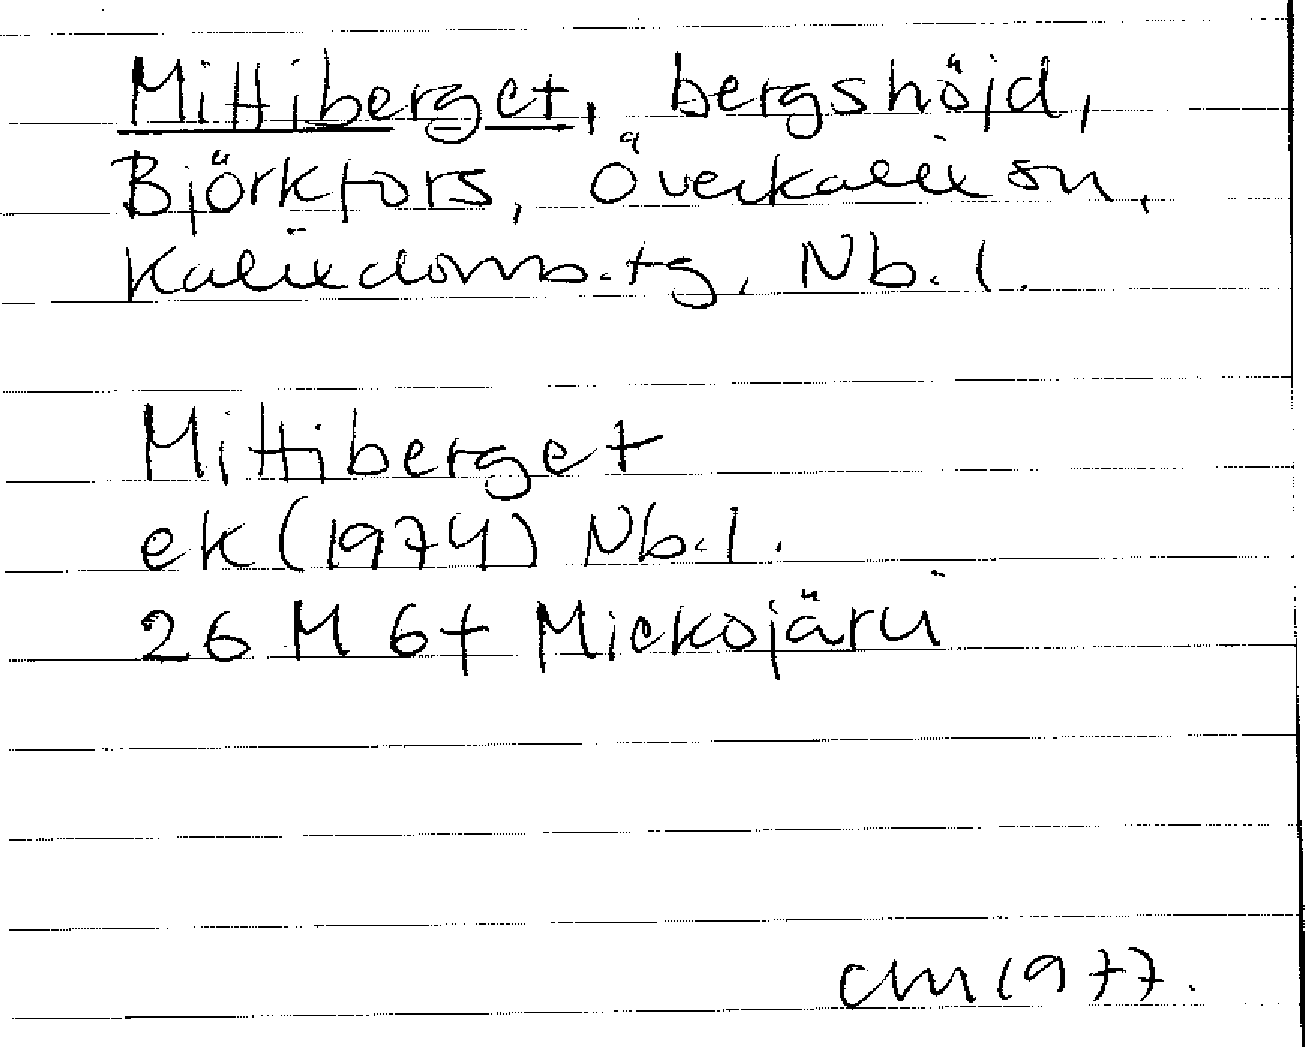 Mittiberget, bergshöjd,
Björkfors, Överkalix sn,
Kalix domb.tg, Nb.l.
Mittiberget
ek (1974) Nb.l.
26 M 6f Mickojärv
CM 1977.